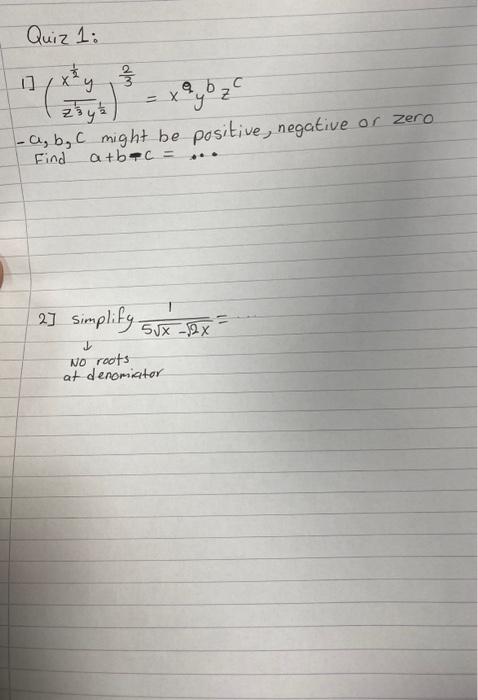 Quiz 1:
1] (x^(1/2) y / z^(1/3) y^(1/2))^(2/3) = x^a y^b z^c
- a, b, c might be positive, negative or zero
Find a+b-c = ...
2] simplify 1/(5√x - √2x) = ....
↓
NO roots
at denomiator